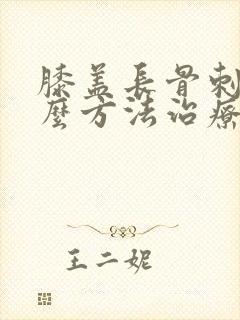 膝盖長骨刺
麼方法治療
王二妮